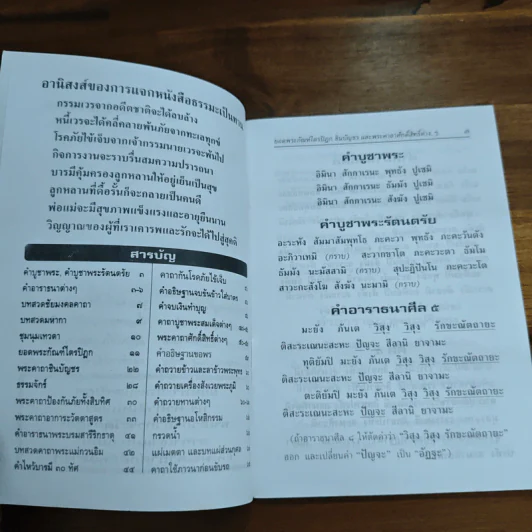 อานิสงส์ของการแจกหนังสือธรรมะเป็นทาน
กรรมเวรจากอดีตชาติจะได้ลบล้าง
หนี้เวรจะได้คลี่คลายพ้นภัยจากทะเลทุกข์
โรคภัยไข้เจ็บจากเจ้ากรรมนายเวรจะพ้นไป
กิจการงานจะราบรื่นสมความปรารถนา
บารมีคุ้มครองลูกหลานให้อยู่เย็นเป็นสุข
ลูกหลานที่ดื้อรั้นก็จะกลายเป็นคนดี
พ่อแม่จะมีสุขภาพแข็งแรงและอายุยืนนาน
วิญญาณของผู้ที่เราเคารพและรักจะได้ไปสู่สุคติ
สารบัญ
คำบูชาพระ, คำบูชาพระรัตนตรัย ๓
คำอาราธนาต่างๆ ๓-๖
บทสวดชัยมงคลคาถา ๗
บทสวดมหากา ๙
ชุมนุมเทวดา ๑๐
ยอดพระกัณฑ์ไตรปิฎก ๑๑
พระคาถาชินบัญชร ๒๒
ธรรมจักร์ ๒๘
พระคาถาป้องกันภัยทั้งสิบทิศ ๓๐
พระคาถาอาการะวัตตาสูตร ๓๑
คำอาราธนาพระบรมสารีริกธาตุ ๔๑
บทสวดคาถาพระแม่กวนอิม ๔๒
คำไหว้บารมี ๓๐ ทัศ ๔๔
คาถากันโรคภัยไข้เจ็บ
คำอธิษฐานจบขันข้าวใส่บาตร
คำจบเงินทำบุญ
คาถาบูชาพระสมเด็จต่างๆ
พระคาถาศักดิ์สิทธิ์ต่างๆ
คำอธิษฐานขอพร
คำถวายข้าวและลาข้าวพระพุทธ
คำถวายเครื่องสังเวยพระภูมิ
คำถวายทานต่างๆ
คำอธิษฐานอโหสิกรรม
กรวดน้ำ
แผ่เมตตา และบทแผ่ส่วนกุศล
คาถาใช้ภาวนาก่อนขับรถ
ยอดพระกัณฑ์ไตรปิฎก ชินบัญชร และพระคาถาศักดิ์สิทธิ์ต่าง ๆ ๓
คำบูชาพระ
อิมินา สักกาเรนะ พุทธัง ปูเชมิ
อิมินา สักกาเรนะ ธัมมัง ปูเชมิ
อิมินา สักกาเรนะ สังฆัง ปูเชมิ
คำบูชาพระรัตนตรัย
อะระหัง สัมมาสัมพุทโธ ภะคะวา พุทธัง ภะคะวันตัง
อะภิวาเทมิ (กราบ) สะวากขาโต ภะคะวะตา ธัมโม
ธัมมัง นะมัสสามิ (กราบ) สุปะฏิปันโน ภะคะวะโต
สาวะกะสังโฆ สังฆัง นะมามิ (กราบ)
คำอาราธนาศีล ๕
มะยัง ภันเต วิสุง วิสุง รักขะณัตถายะ
ติสะระเณนะสะหะ ปัญจะ สีลานิ ยาจามะ
ทุติยัมปิ มะยัง ภันเต วิสุง วิสุง รักขะณัตถายะ
ติสะระเณนะสะหะ ปัญจะ สีลานิ ยาจามะ
ตะติยัมปิ มะยัง ภันเต วิสุง วิสุง รักขะณัตถายะ
ติสะระเณนะสะหะ ปัญจะ สีลานิ ยาจามะ
(ถ้าอาราธนาศีล ๘ ให้ตัดคำว่า "วิสุง วิสุง รักขะณัตถายะ"
ออก และเปลี่ยนคำ "ปัญจะ" เป็น "อัฏฐะ")